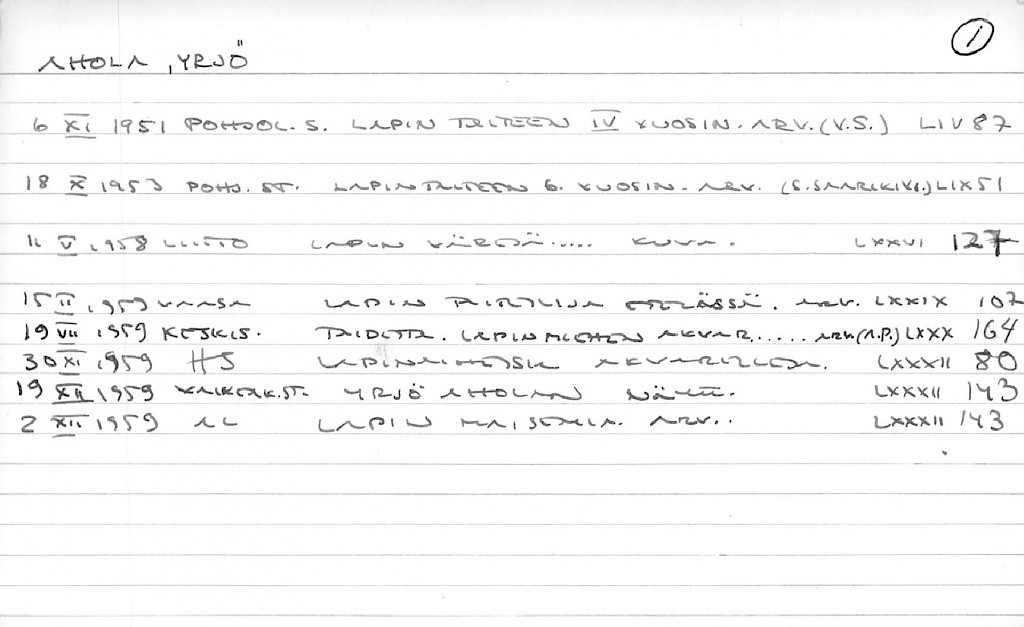 1
AHOLA, YRJÖ
6 XI 1951 POHJOL. S. LAPIN TAITEEN IV VUOSIN. ARV. (V.S.) LIV 87
18 X 1953 POHJ. ST. LAPIN TAITEEN 6. VUOSIN. ARV. (S. SAARIKIVI.) LIX 51
11 V 1958 LIITTO LAPIN VÄREJÄ..... KUVA. LXXVI 127
15 II 1959 VAASA LAPIN TAITEILIJA ETELÄSSÄ. ARV. LXXIX 107
19 VII 1959 KESKIS. TAIDETTA. LAPIN MIEHEN AKVAR...... ARV. (A.P.) LXXX 164
30 XI 1959 HS AKVARELLEJA. LXXXII 80
19 XII 1959 YRJÖ AHOLAN NÄYTT. LXXXII 143
2 XII 1959 AL LAPIN MAISEMIA. ARV.. LXXXII 143